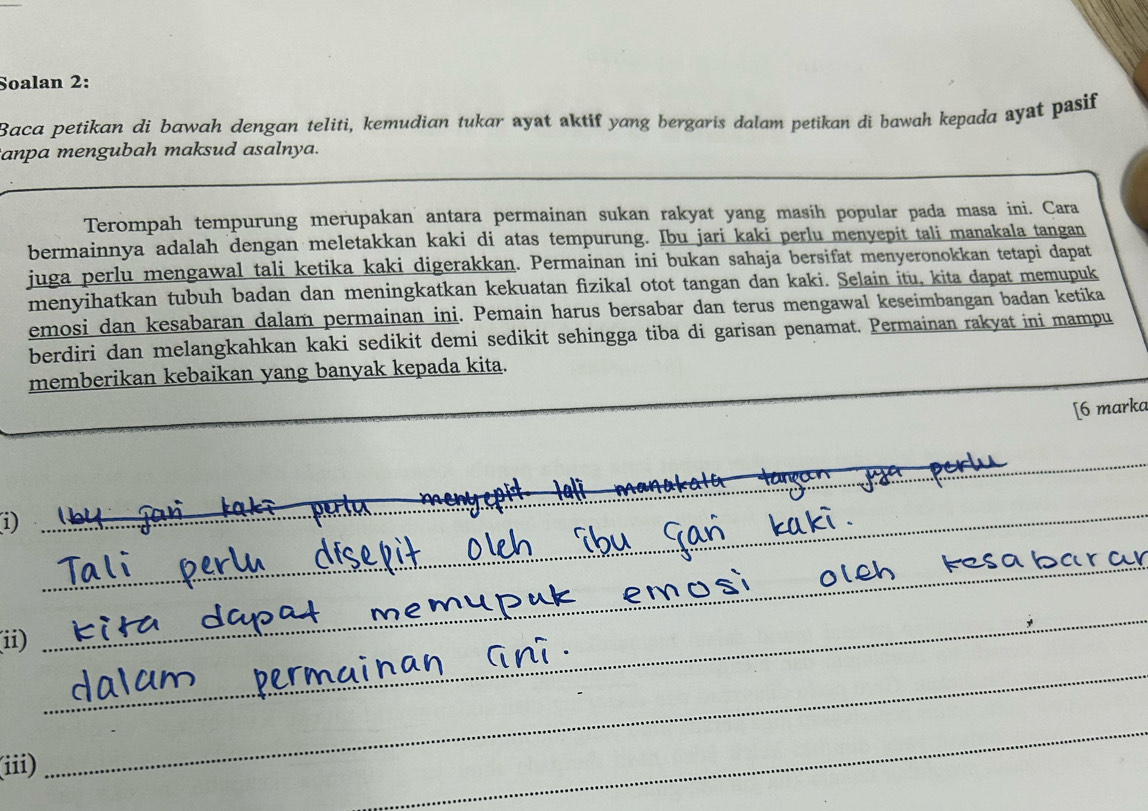 Soalan 2:
Baca petikan di bawah dengan teliti, kemudian tukar ayat aktif yang bergaris dalam petikan di bawah kepada ayat pasif
tanpa mengubah maksud asalnya.
Terompah tempurung merupakan antara permainan sukan rakyat yang masih popular pada masa ini. Cara
bermainnya adalah dengan meletakkan kaki di atas tempurung. Ibu jari kaki perlu menyepit tali manakala tangan
juga perlu mengawal tali ketika kaki digerakkan. Permainan ini bukan sahaja bersifat menyeronokkan tetapi dapat
menyihatkan tubuh badan dan meningkatkan kekuatan fizikal otot tangan dan kaki. Selain itu, kita dapat memupuk
emosi dan kesabaran dalam permainan ini. Pemain harus bersabar dan terus mengawal keseimbangan badan ketika
berdiri dan melangkahkan kaki sedikit demi sedikit sehingga tiba di garisan penamat. Permainan rakyat ini mampu
memberikan kebaikan yang banyak kepada kita.
[6 marka
(i) Ibu jari kaki perlu menyepit tali manakala tangan jga perlu
Tali perlu disepit oleh ibu jari kaki.
(ii) kita dapat memupuk emosi oleh kesabaran
dalam permainan ini.
(iii)